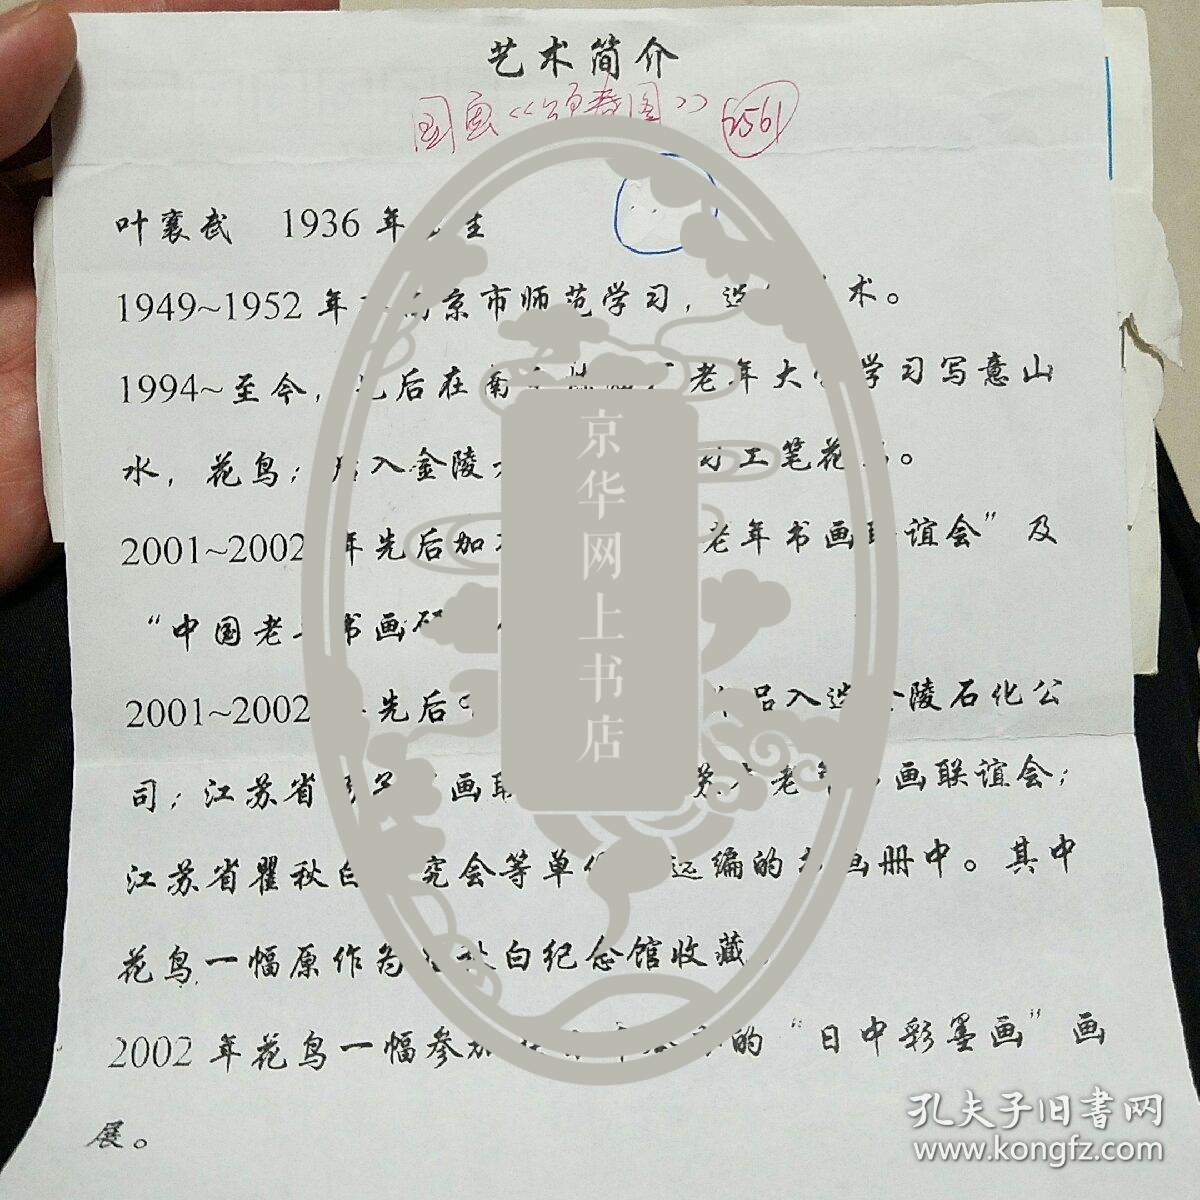 艺术简介
国画《迎春图》 2561
叶襄武 1936年 生
1949~1952年 南京市师范学习，选 术。
1994~至今，先后在南 老年大学学习写意山
水，花鸟；后入金陵 工笔花鸟。
2001~2002年先后加 老年书画联谊会”及
“中国老年书画研
2001~2002年先后 作品入选金陵石化公
司；江苏省 画联 老年书画联谊会；
江苏省瞿秋白研究会等单位 选编的书画册中。其中
花鸟一幅原作为瞿秋白纪念馆收藏。
2002年花鸟一幅参加 的“日中彩墨画”画
展。
京华网上书店
孔夫子旧书网
www.kongfz.com